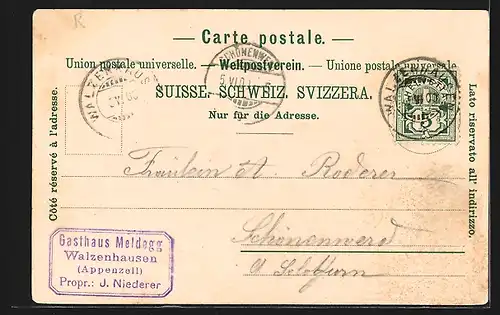 — Carte postale. —
Union postale universelle. — Weltpostverein. — Unione postale universale.
SUISSE. SCHWEIZ. SVIZZERA.
Nur für die Adresse.
Côté réservé à l'adresse.
Lato riservato all' indirizzo.
WALZENHAUSEN
SCHÖNENWERD
5.VI.0
WALZENHAUSEN
5
Fräulein A. Roderer
Schönenwerd
Gasthaus Meldegg
Walzenhausen
(Appenzell)
Propr.: J. Niederer